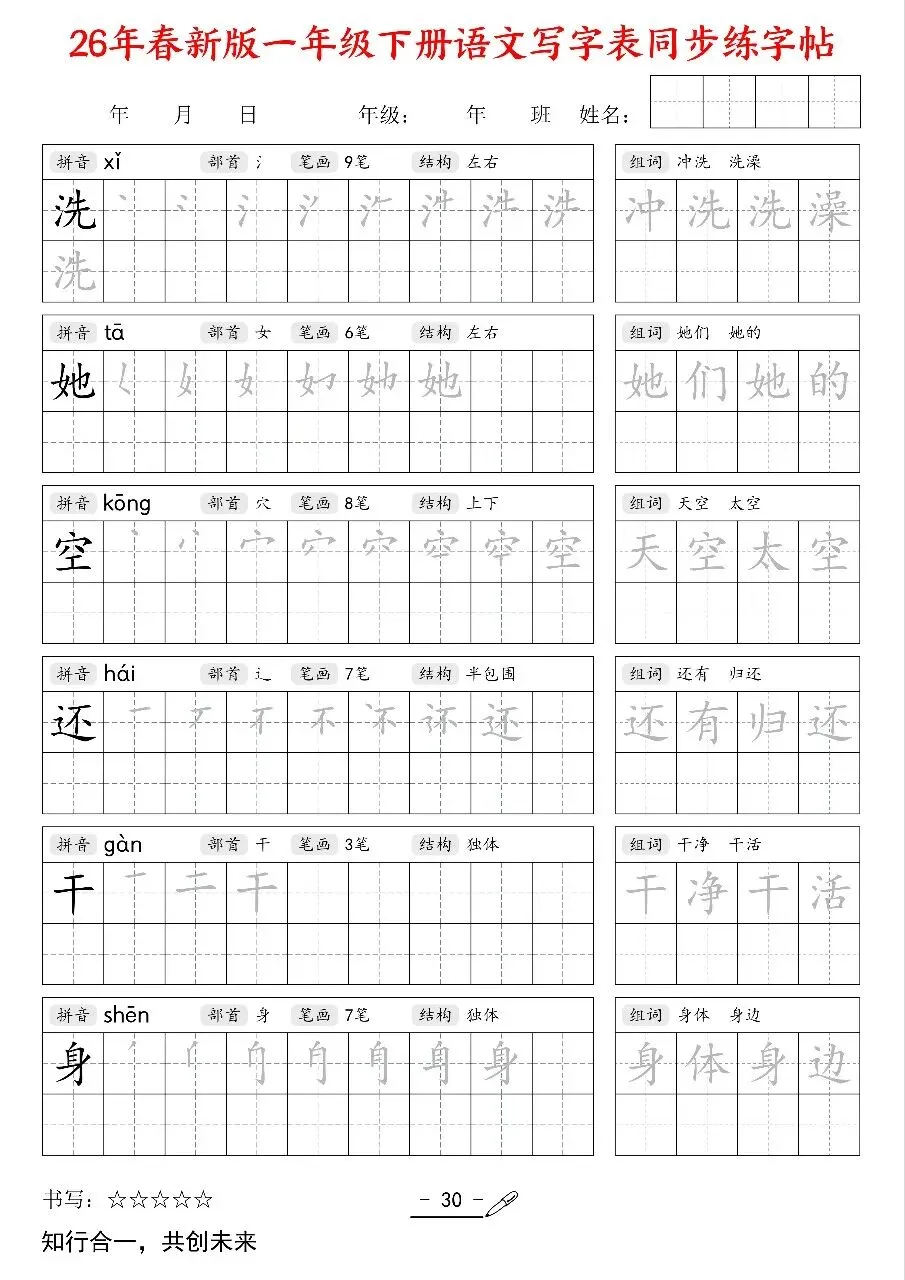 26年春新版一年级下册语文写字表同步练字帖
年 月 日 年级： 年 班 姓名：
拼音 xǐ 部首 氵 笔画 9笔 结构 左右
组词 冲洗 洗澡
洗
冲洗洗澡
洗
拼音 tā 部首 女 笔画 6笔 结构 左右
组词 她们 她的
她 她
她们她的
拼音 kōng 部首 穴 笔画 8笔 结构 上下
组词 天空 太空
空 空
天空太空
拼音 hái 部首 辶 笔画 7笔 结构 半包围
组词 还有 归还
还 还
还有归还
拼音 gàn 部首 干 笔画 3笔 结构 独体
组词 干净 干活
干 一 二 干
干净干活
拼音 shēn 部首 身 笔画 7笔 结构 独体
组词 身体 身边
身 身
身体身边
书写：☆☆☆☆☆
- 30 -
知行合一，共创未来